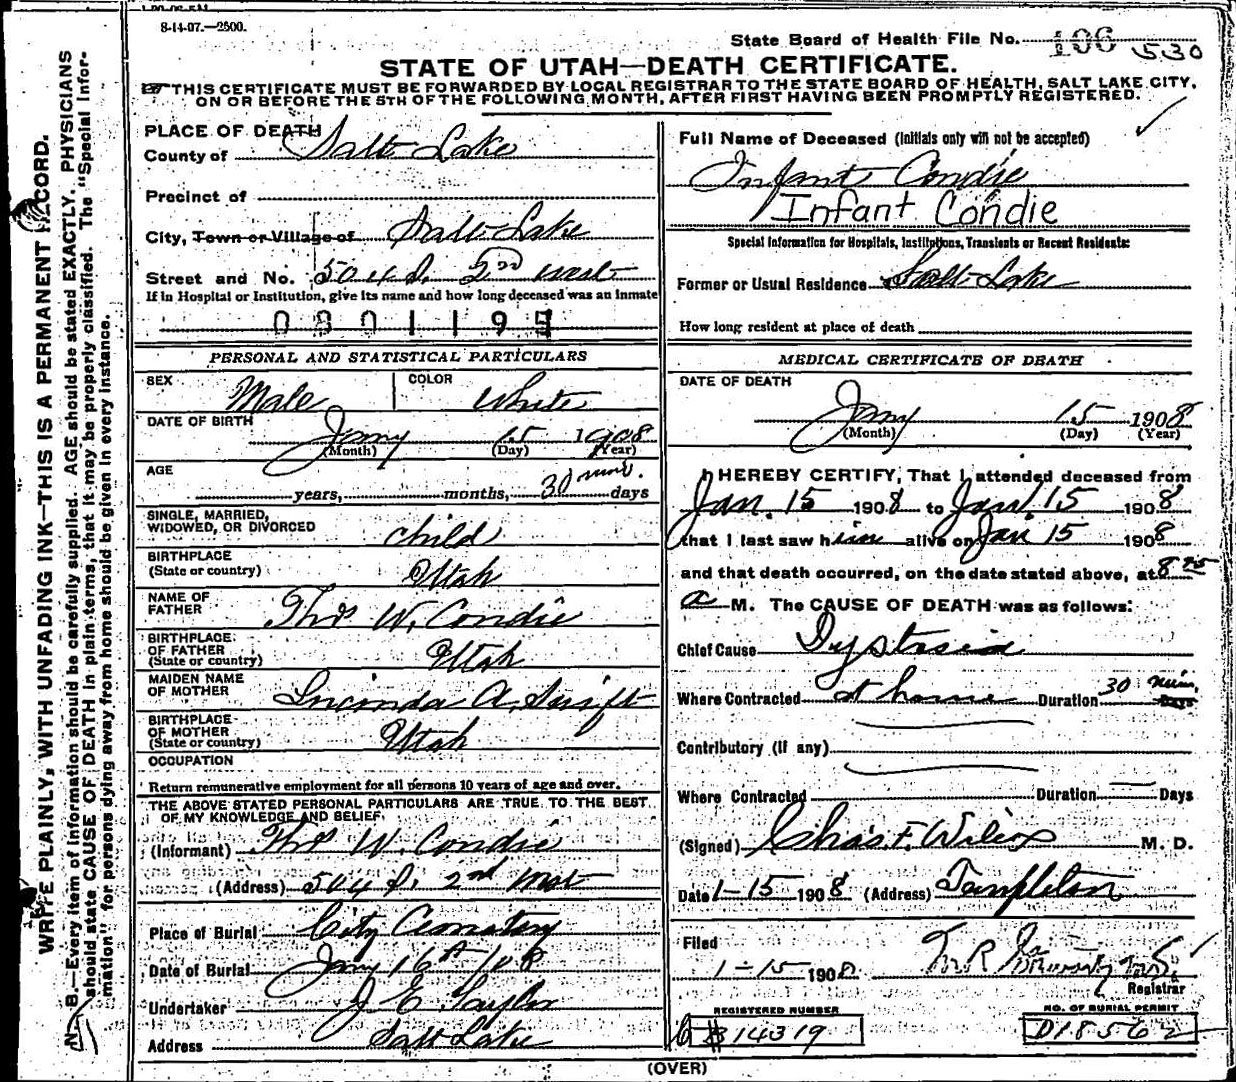 8-14-07.—2500.
State Board of Health File No. 106 530
STATE OF UTAH—DEATH CERTIFICATE.
THIS CERTIFICATE MUST BE FORWARDED BY LOCAL REGISTRAR TO THE STATE BOARD OF HEALTH, SALT LAKE CITY,
ON OR BEFORE THE 5TH OF THE FOLLOWING MONTH, AFTER FIRST HAVING BEEN PROMPTLY REGISTERED.
WRITE PLAINLY, WITH UNFADING INK—THIS IS A PERMANENT RECORD.
N. B.—Every item of information should be carefully supplied. AGE should be stated EXACTLY. PHYSICIANS
should state CAUSE OF DEATH in plain terms, that it may be properly classified. The "Special Infor-
mation" for persons dying away from home should be given in every instance.
PLACE OF DEATH
County of Salt Lake
Precinct of
City, Town or Village of Salt Lake
Street and No. 504 S. 2nd West
If in Hospital or Institution, give its name and how long deceased was an inmate
PERSONAL AND STATISTICAL PARTICULARS
SEX Male COLOR White
DATE OF BIRTH
Jany 15 1908
(Month) (Day) (Year)
AGE
years, months, 30 min. days
SINGLE, MARRIED,
WIDOWED, OR DIVORCED child
BIRTHPLACE
(State or country) Utah
NAME OF
FATHER Thos W. Condie
BIRTHPLACE
OF FATHER
(State or country) Utah
MAIDEN NAME
OF MOTHER Lucinda A. Swift
BIRTHPLACE
OF MOTHER
(State or country) Utah
OCCUPATION
Return remunerative employment for all persons 10 years of age and over.
THE ABOVE STATED PERSONAL PARTICULARS ARE TRUE TO THE BEST
OF MY KNOWLEDGE AND BELIEF
(Informant) Thos W. Condie
(Address) 504 S. 2nd West
Place of Burial City Cemetery
Date of Burial Jany 16th/08
Undertaker J E Taylor
Address Salt Lake
Full Name of Deceased (Initials only will not be accepted)
Infant Condie
Infant Condie
Special Information for Hospitals, Institutions, Transients or Recent Residents:
Former or Usual Residence Salt Lake
How long resident at place of death
MEDICAL CERTIFICATE OF DEATH
DATE OF DEATH
Jany 15 1908
(Month) (Day) (Year)
I HEREBY CERTIFY, That I attended deceased from
Jan. 15 1908 to Jan. 15 1908
that I last saw him alive on Jan 15 1908
and that death occurred, on the date stated above, at 8
a M. The CAUSE OF DEATH was as follows:
Chief Cause
Where Contracted at home Duration 30 min. Days
Contributory (if any)
Where Contracted Duration — Days
(Signed) Chas. F. Wilcox M. D.
Date 1-15 1908 (Address) Templeton
Filed
1-15 1908
Registrar
REGISTERED NUMBER
B 14319
NO. OF BURIAL PERMIT
D18562
(OVER)